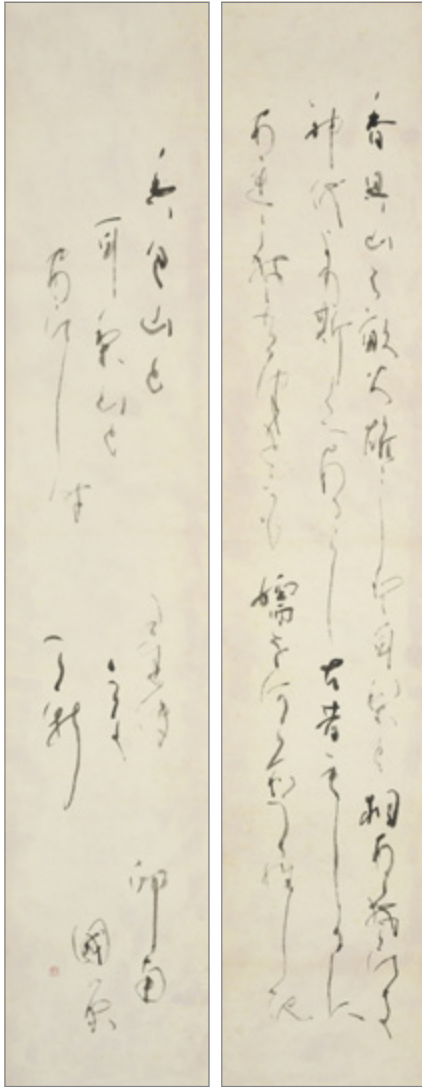 香具山は畝火雄々しと耳梨と相あらそひき
神代より斯くにあるらし古昔もしかに
あれこそうつせみも嬬をあらそふらしき
香具山と
耳梨山と
あひし時
印南
國原